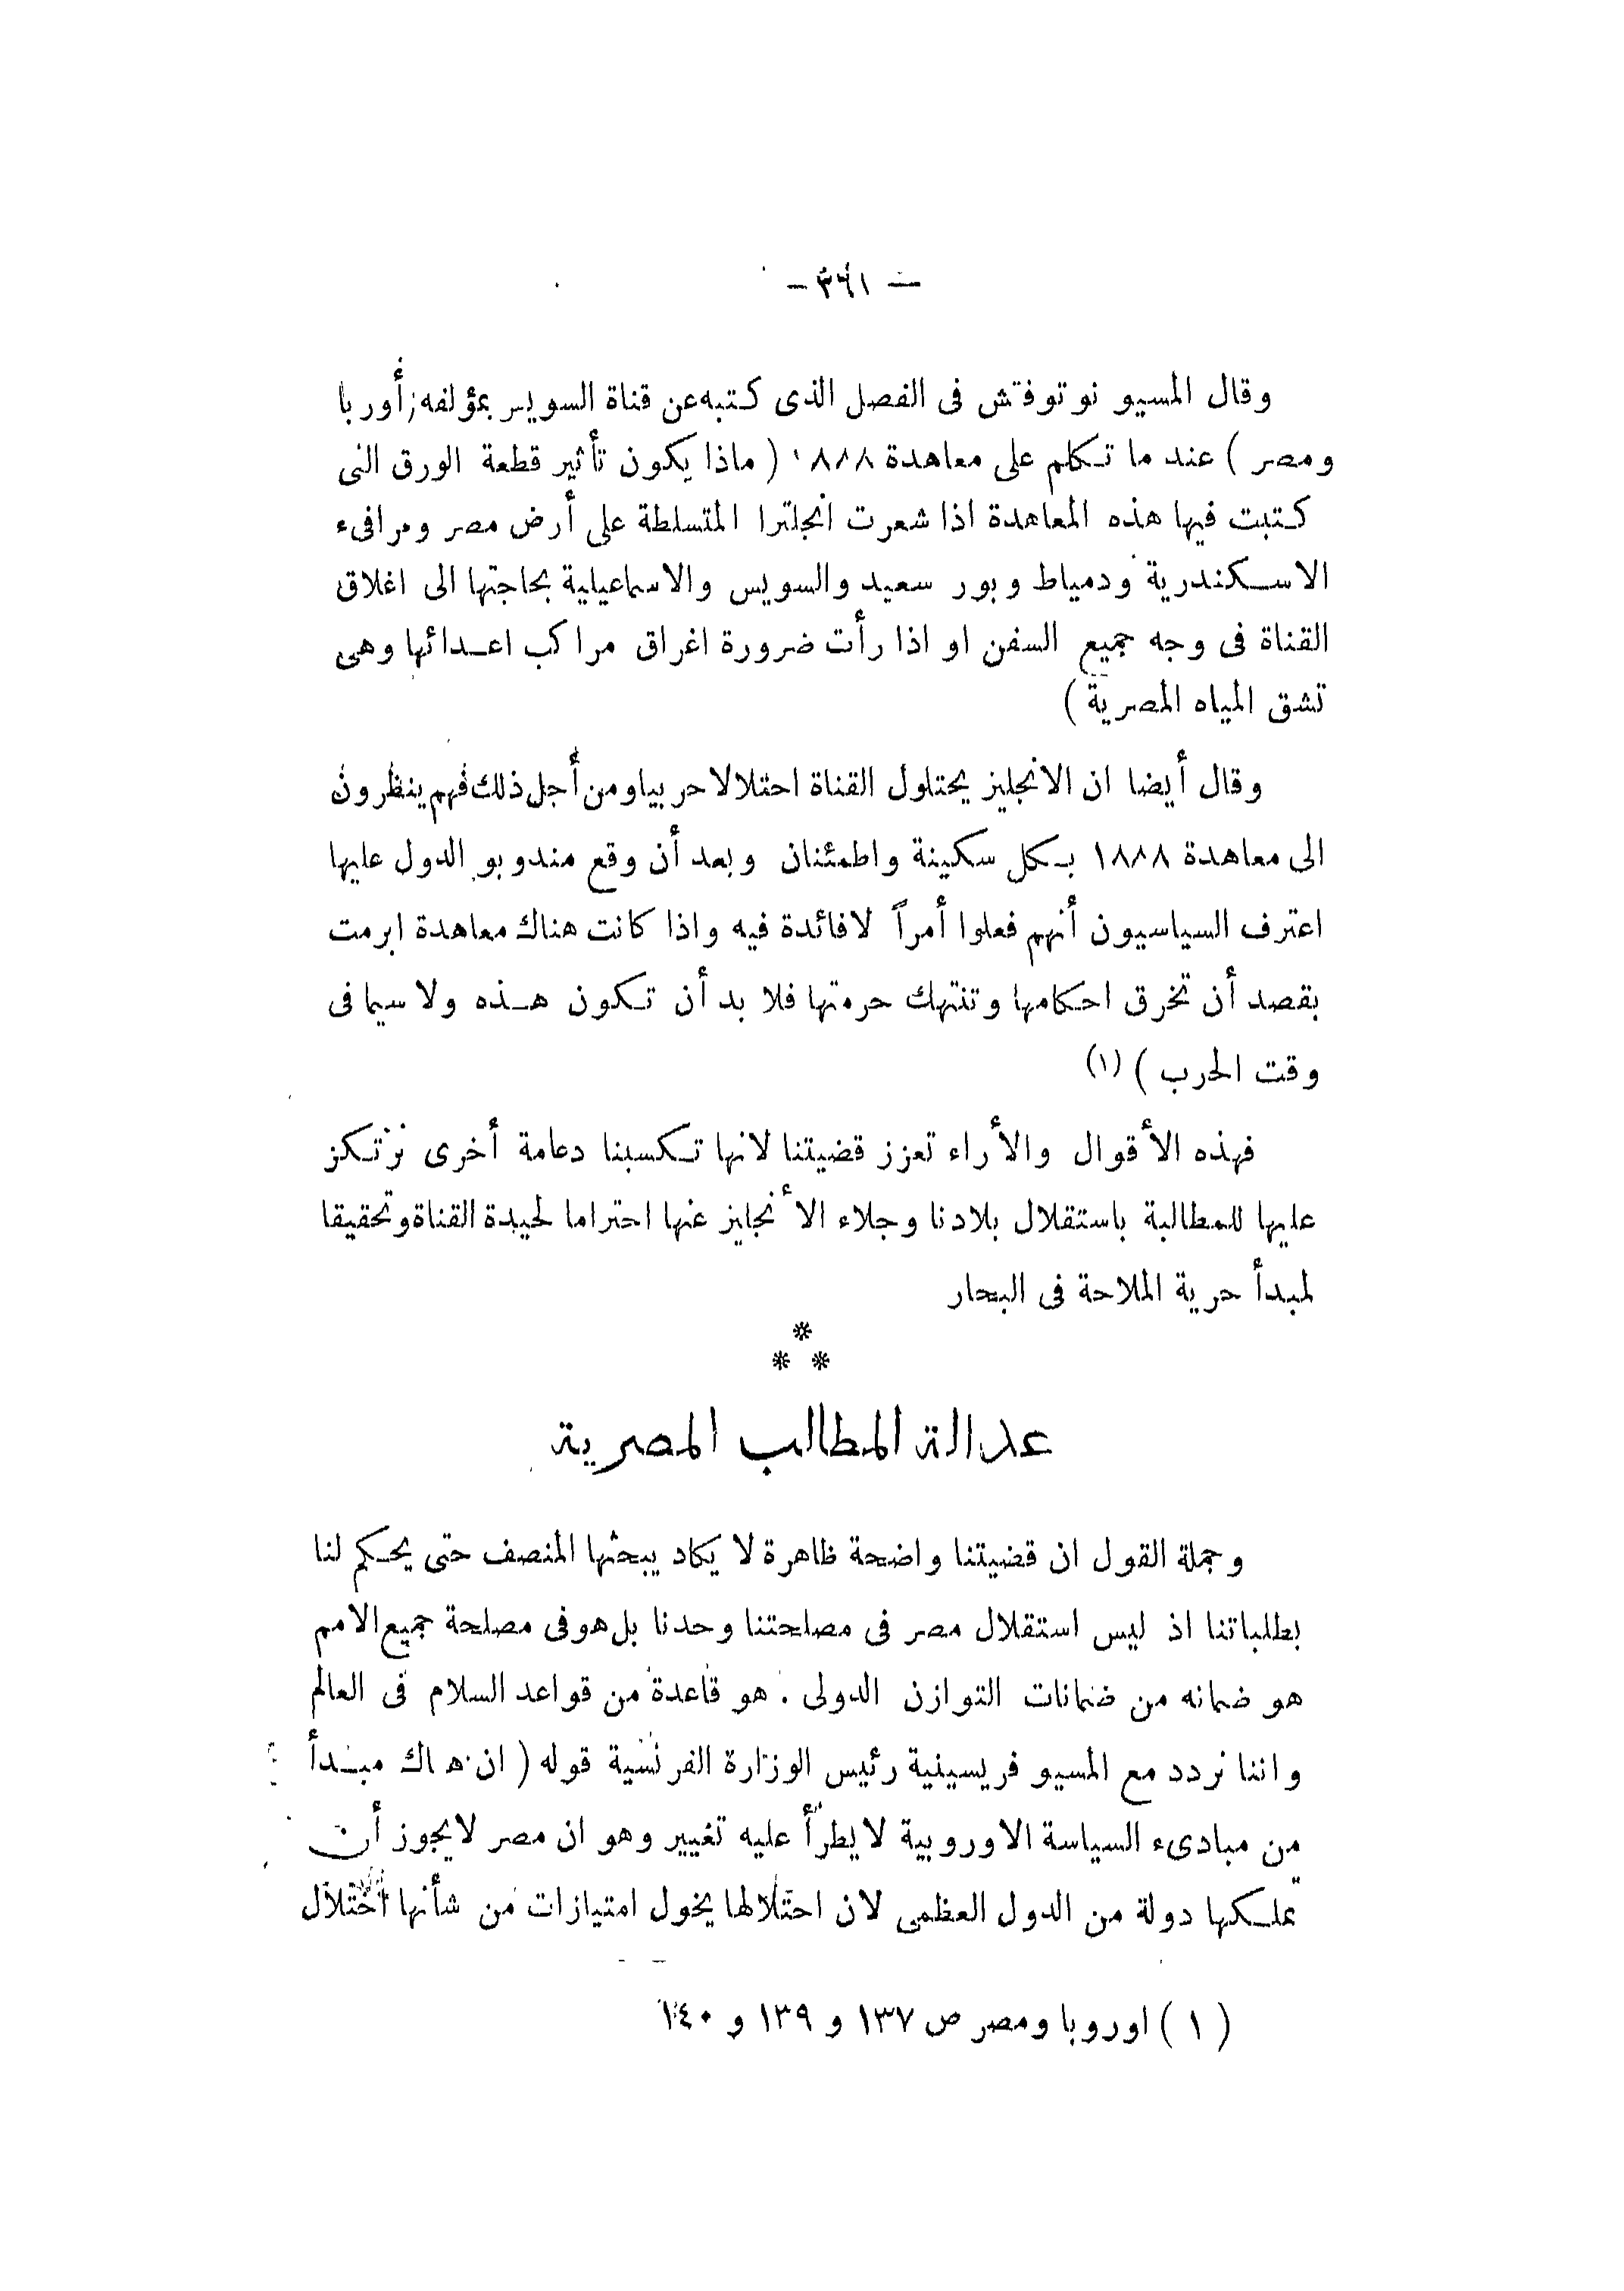 — ٣٦١ —
وقال المسيو نوتوفتش فى الفصل الذى كتبه عن قناة السويس بمؤلفه ( أوربا
ومصر ) عند ما تكلم على معاهدة ١٨٨٨ ( ماذا يكون تأثير قطعة الورق التى
كتبت فيها هذه المعاهدة اذا شعرت انجلترا المتسلطة على أرض مصر ومرافىء
الاسكندرية ودمياط وبور سعيد والسويس والاسماعيلية بحاجتها الى اغلاق
القناة فى وجه جميع السفن او اذا رأت ضرورة اغراق مراكب اعدائها وهى
تشق المياه المصرية )
وقال أيضا ان الانجليز يحتلول القناة احتلالا حربيا ومن أجل ذلك فهم ينظرون
الى معاهدة ١٨٨٨ بكل سكينة واطمئنان وبعد أن وقع مندوبو الدول عليها
اعترف السياسيون أنهم فعلوا أمراً لا فائدة فيه واذا كانت هناك معاهدة ابرمت
بقصد أن تخرق احكامها وتنتهك حرمتها فلا بد أن تكون هذه ولا سيما فى
وقت الحرب ) (١)
فهذه الأقوال والأراء تعزز قضيتنا لانها تكسبنا دعامة أخرى نرتكز
عليها للمطالبة باستقلال بلادنا وجلاء الأنجليز عنها احتراما لحيدة القناة وتحقيقا
لمبدأ حرية الملاحة فى البحار
*
* *
عدالة المطالب المصرية
وجملة القول ان قضيتنا واضحة ظاهرة لا يكاد يبحثها المنصف حتى يحكم لنا
بطلباتنا اذ ليس استقلال مصر فى مصلحتنا وحدنا بل هو فى مصلحة جميع الامم
هو ضمانه من ضمانات التوازن الدولى . هو قاعدة من قواعد السلام فى العالم
واننا نردد مع المسيو فريسينية رئيس الوزارة الفرنسية قوله ( ان هناك مبدأ
من مبادىء السياسة الاوروبية لا يطرأ عليه تغيير وهو ان مصر لا يجوز أن
تملكها دولة من الدول العظمى لان احتلالها يخول امتيازات من شأنها اختلال
( ١ ) اوروبا ومصر ص ١٣٧ و ١٣٩ و ١٤٠